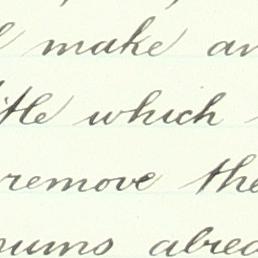 make an
tle which
remove the
nums abrea